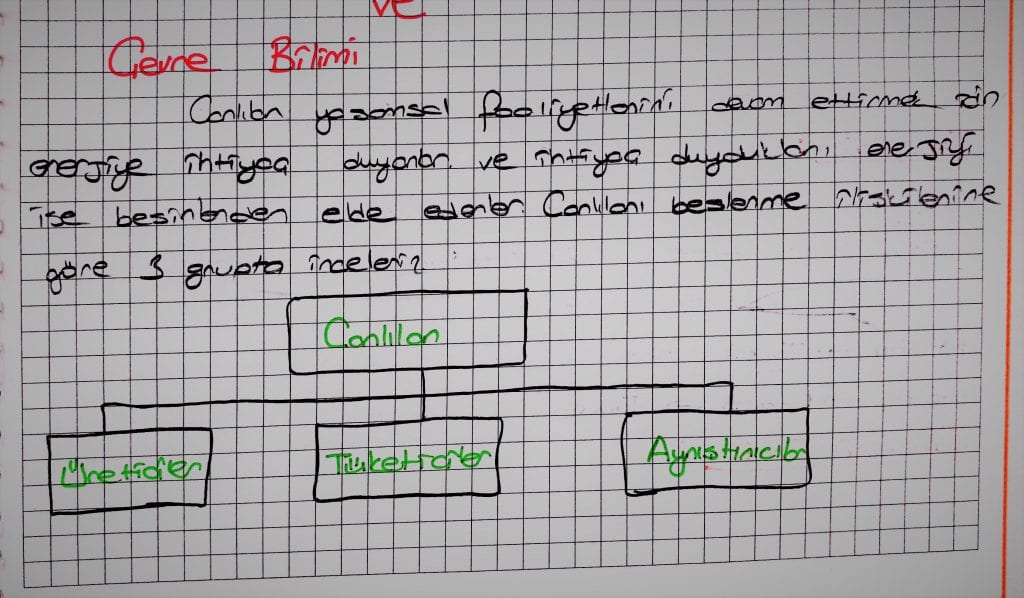 ve
Çevre Bilimi
Canlılar yaşamsal faaliyetlerini devam ettirmek için
enerjiye ihtiyaç duyarlar ve ihtiyaç duydukları enerjiyi
ise besinlerden elde ederler. Canlıları beslenme ilişkilerine
göre 3 grupta inceleriz
Canlılar
Üreticiler Tüketiciler Ayrıştırıcılar